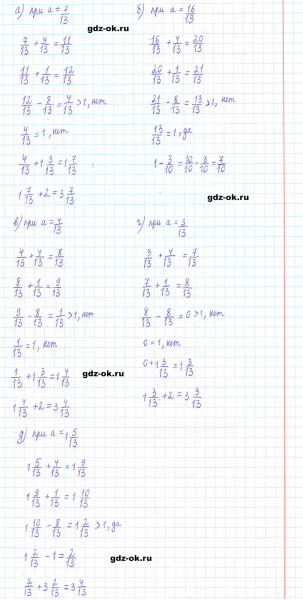 а) при a = 7/13
7/13 + 4/13 = 11/13
11/13 + 1/13 = 12/13
12/13 - 8/13 = 4/13 > 1, нет
4/13 = 1, нет
4/13 + 1 3/13 = 1 7/13
1 7/13 + 2 = 3 7/13
б) при a = 16/13
gdz-ok.ru
16/13 + 4/13 = 20/13
20/13 + 1/13 = 21/13
21/13 - 8/13 = 13/13 > 1, нет
13/13 = 1, да
1 - 3/10 = 10/10 - 3/10 = 7/10
gdz-ok.ru
в) при a = 4/13
4/13 + 4/13 = 8/13
8/13 + 1/13 = 9/13
9/13 - 8/13 = 1/13 > 1, нет
1/13 = 1, нет
1/13 + 1 3/13 = 1 4/13
gdz-ok.ru
1 4/13 + 2 = 3 4/13
г) при a = 3/13
3/13 + 4/13 = 7/13
7/13 + 1/13 = 8/13
8/13 - 8/13 = 0 > 1, нет
0 = 1, нет
0 + 1 3/13 = 1 3/13
1 3/13 + 2 = 3 3/13
д) при a = 1 5/13
gdz-ok.ru
1 5/13 + 4/13 = 1 9/13
1 9/13 + 1/13 = 1 10/13
1 10/13 - 8/13 = 1 2/13 > 1, да
1 2/13 - 1 = 2/13
gdz-ok.ru
2/13 + 3 2/13 = 3 4/13